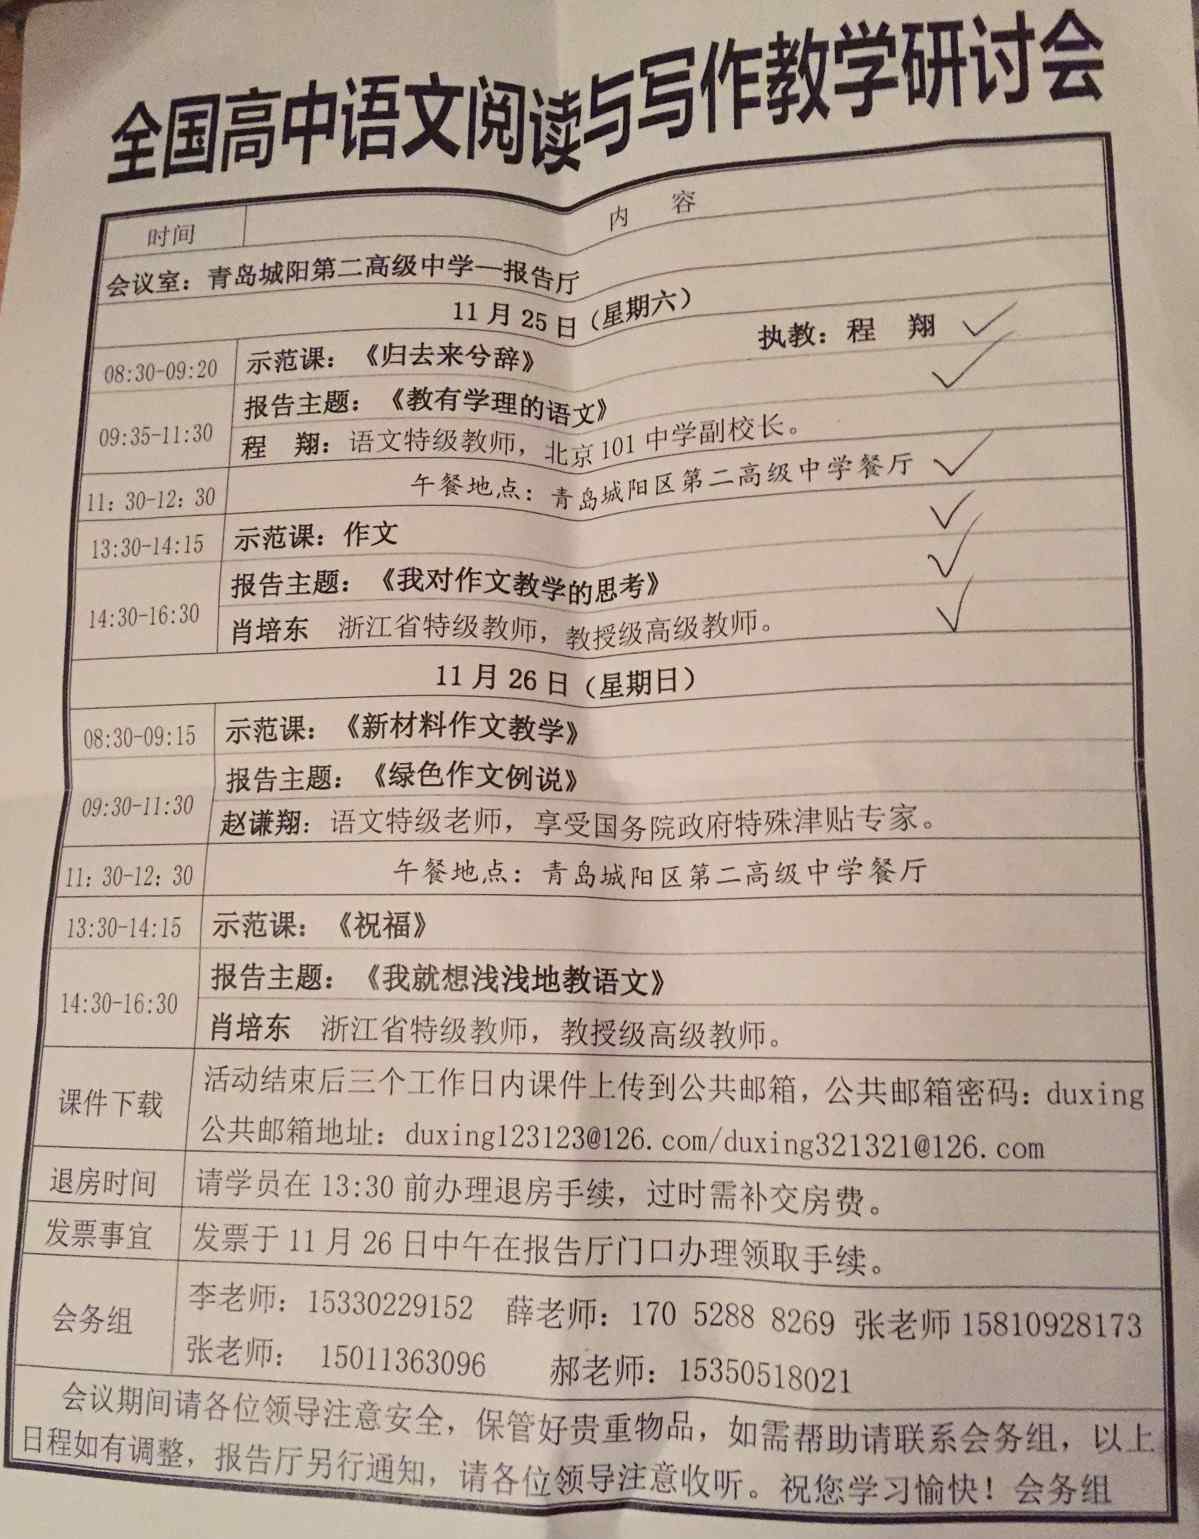 全国高中语文阅读与写作教学研讨会
时间 内 容
会议室：青岛城阳第二高级中学—报告厅
11月25日（星期六）
08:30-09:20 示范课：《归去来兮辞》 执教：程 翔
09:35-11:30 报告主题：《教有学理的语文》
程 翔：语文特级教师，北京101中学副校长。
11：30-12：30 午餐地点：青岛城阳区第二高级中学餐厅
13:30-14:15 示范课：作文
14:30-16:30 报告主题：《我对作文教学的思考》
肖培东 浙江省特级教师，教授级高级教师。
11月26日（星期日）
08:30-09:15 示范课：《新材料作文教学》
09:30-11:30 报告主题：《绿色作文例说》
赵谦翔：语文特级老师，享受国务院政府特殊津贴专家。
11：30-12：30 午餐地点：青岛城阳区第二高级中学餐厅
13:30-14:15 示范课：《祝福》
14:30-16:30 报告主题：《我就想浅浅地教语文》
肖培东 浙江省特级教师，教授级高级教师。
课件下载 活动结束后三个工作日内课件上传到公共邮箱，公共邮箱密码：duxing
公共邮箱地址：duxing123123@126.com/duxing321321@126.com
退房时间 请学员在13:30前办理退房手续，过时需补交房费。
发票事宜 发票于11月26日中午在报告厅门口办理领取手续。
会务组 李老师：15330229152 薛老师：170 5288 8269 张老师15810928173
张老师： 15011363096 郝老师：15350518021
会议期间请各位领导注意安全，保管好贵重物品，如需帮助请联系会务组，以上
日程如有调整，报告厅另行通知，请各位领导注意收听。祝您学习愉快！会务组